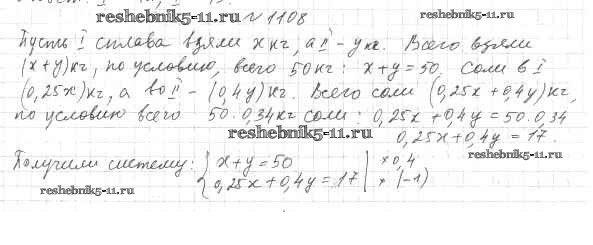 reshebnik5-11.ru № 1108 reshebnik5-11.ru
Пусть I сплава взяли x кг, а II – y кг. Всего взяли
(x+y) кг, по условию, всего 50 кг: x+y=50. Соли в I
(0,25x) кг, а во II – (0,4y) кг. Всего соли (0,25x+0,4y) кг,
по условию всего 50·0,34 кг соли: 0,25x+0,4y=50·0,34
reshebnik5-11.ru 0,25x+0,4y=17.
Получили систему: { x+y=50 | ×0,4 reshebnik5-11.ru
0,25x+0,4y=17 | × (-1)
reshebnik5-11.ru